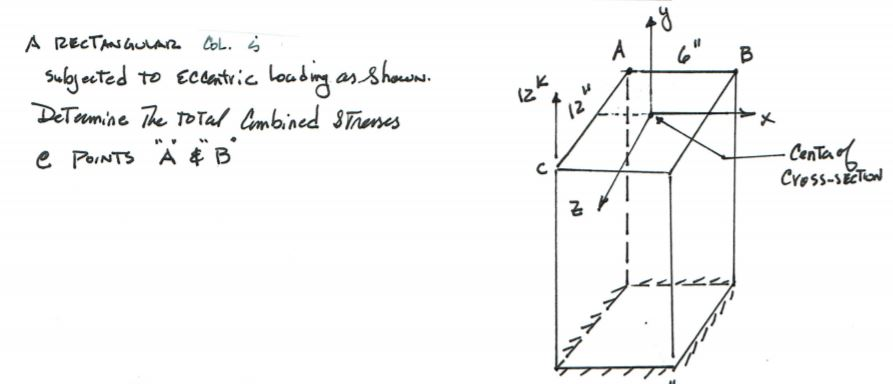 A RECTANGULAR COL. is
subjected to Eccentric Loading as Shown.
DeTermine The ToTal Combined STresses
@ POINTS "A" & "B"
y
A
6"
B
12K
12"
x
C
Center of
CROSS-SECTION
Z